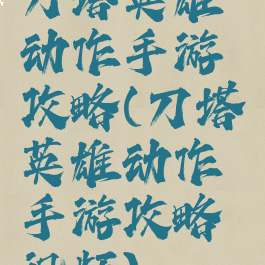 刀塔英雄
动作手游
攻略(刀塔
英雄动作
手游攻略
视频)